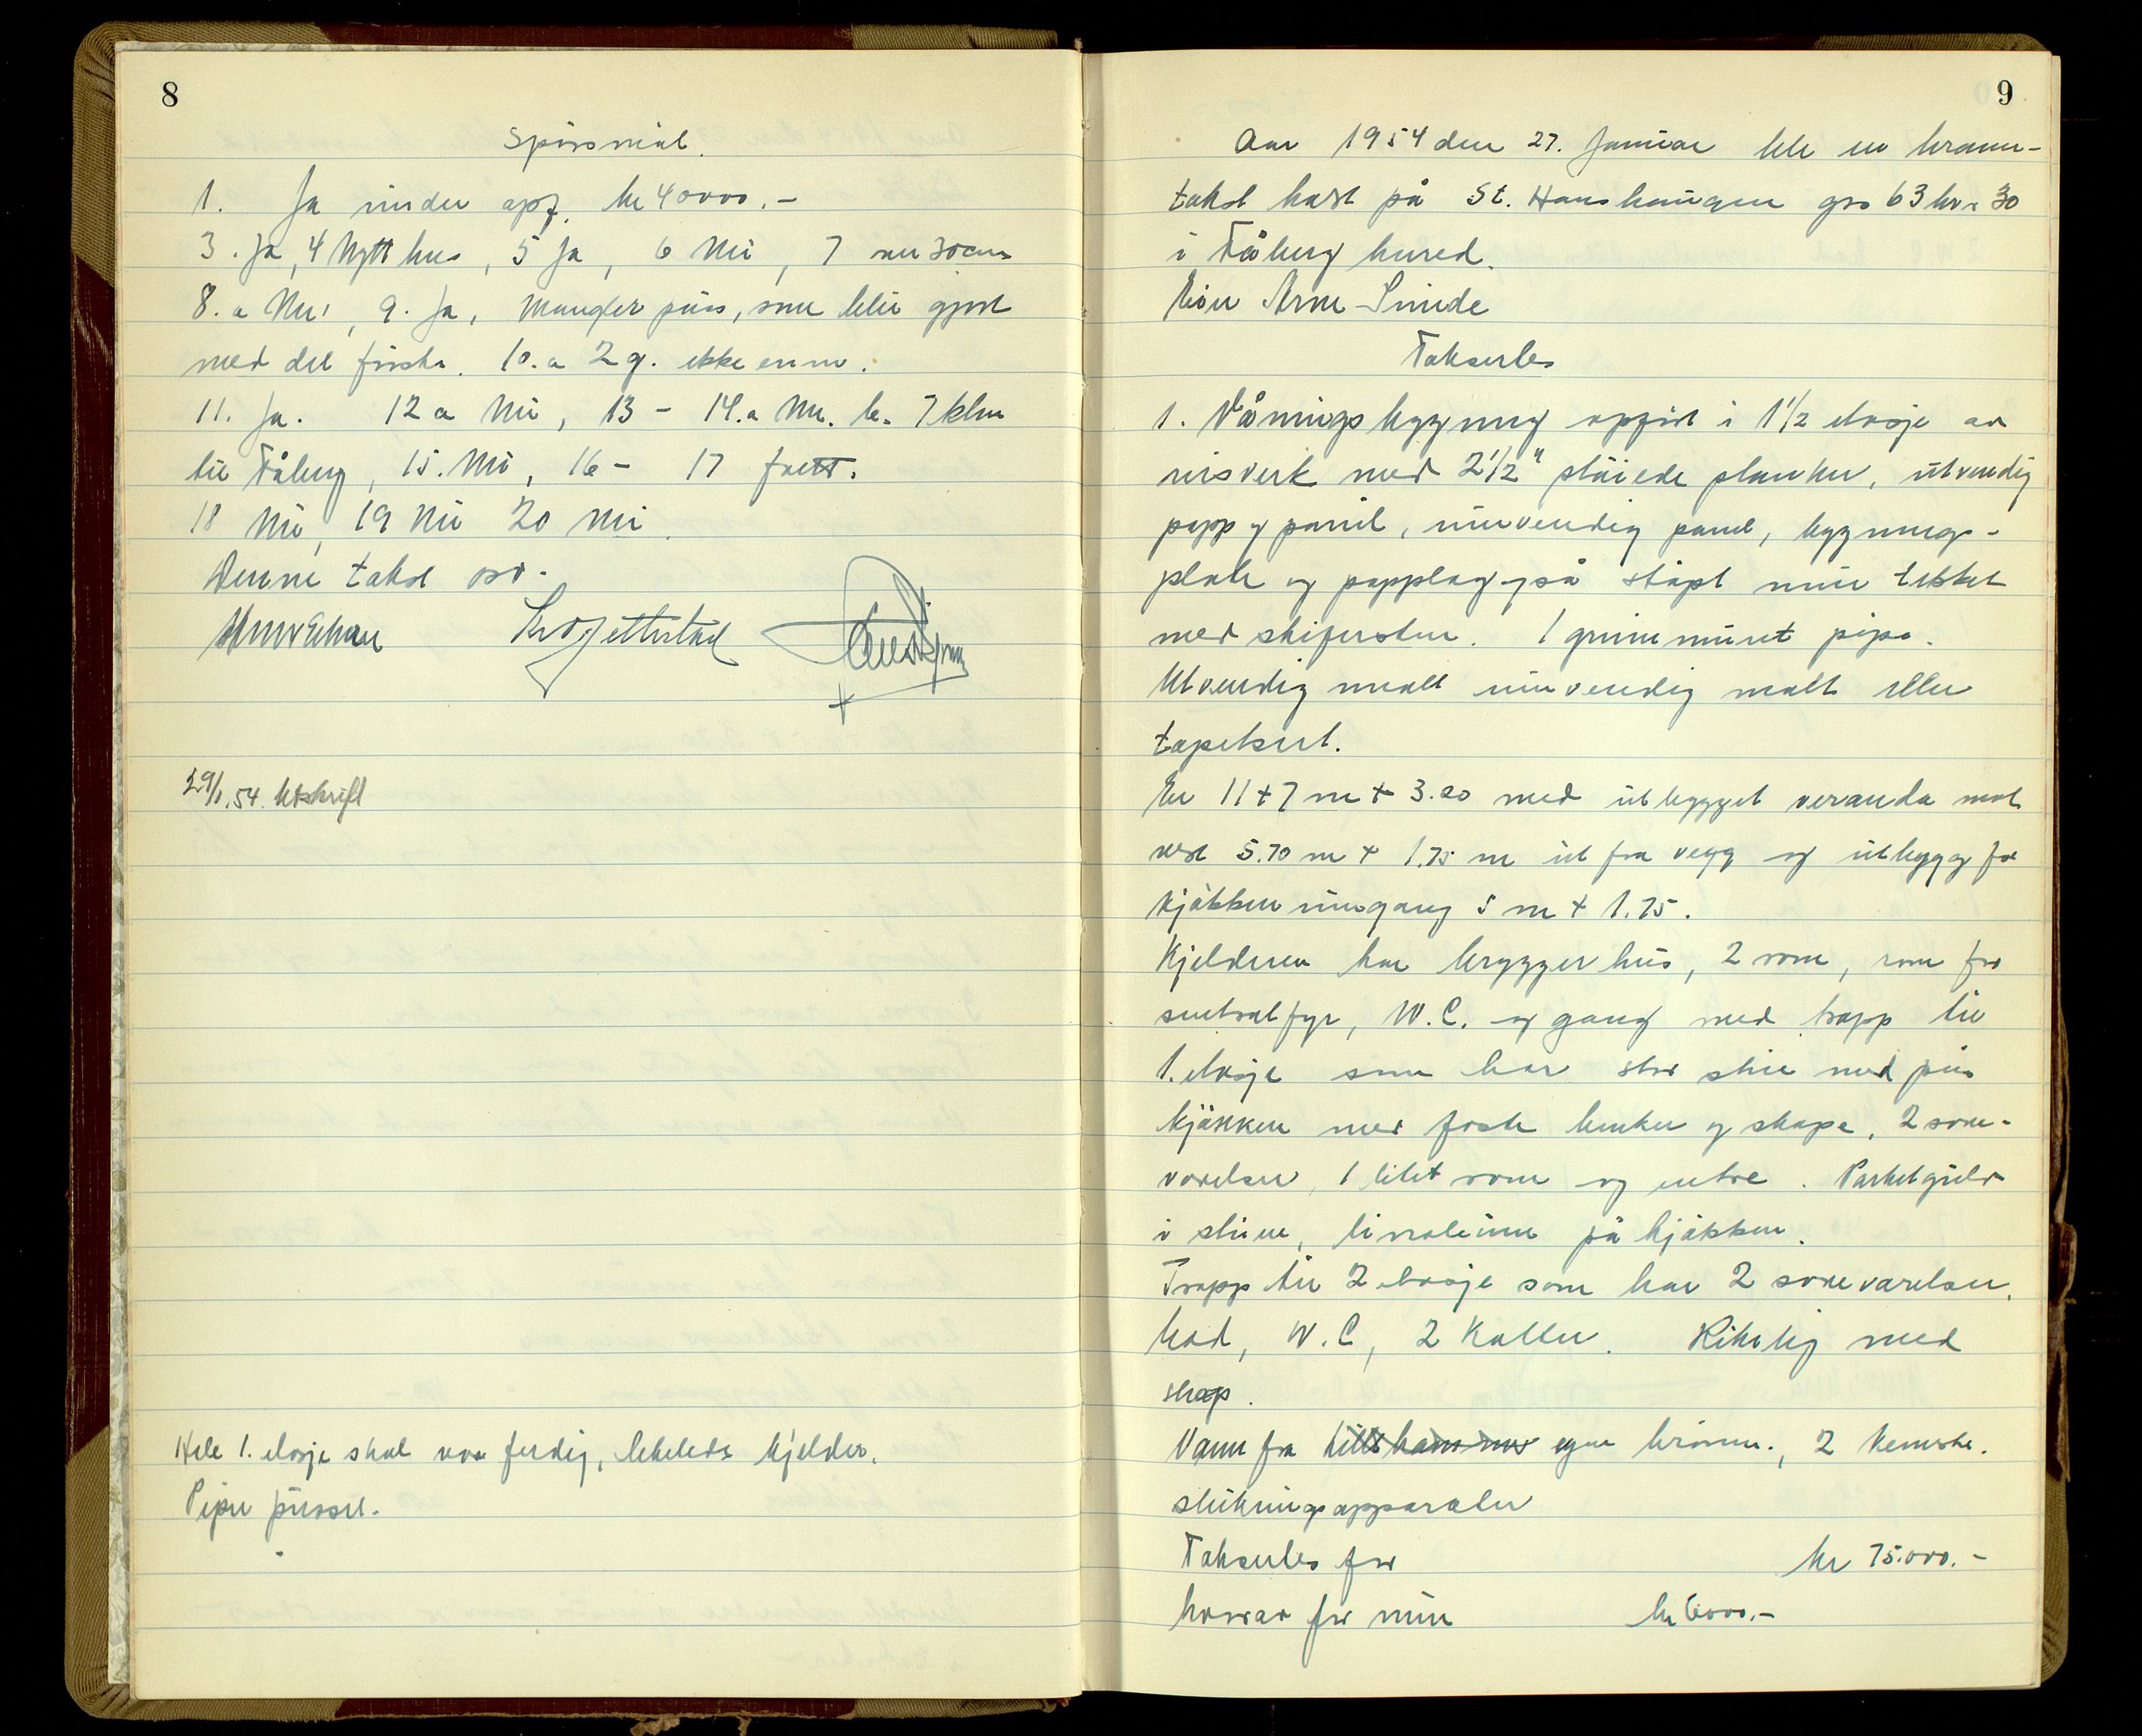 8
Spørsmål.
1. Ja under oppf. kr 40000.-
3. Ja, 4 Nytt hus, 5 Ja, 6 Nei, 7 mur 30cm
8. a Nei, 9. Ja, Mangler puss, som blir gjort
med det første. 10. a 2 g. ikke ennu.
11. Ja. 12 a Nei, 13 - 14. a Nei. b. 7 klm
til Fåberg, 15. Nei, 16 - 17 frett.
18 Nei, 19 Nei 20 Nei.
Denne takst osv.
29/1.54. Utskrift
Hele 1. etasje skal være ferdig, likeleds kjelder.
Piper pusset.
9
Aar 1954 den 27. Januar ble en brann-
takst holdt på St. Hanshaugen gno 63 bno 30
i Fåberg herred.
Eier Arne Sinde
Takseres
1. Våningsbygning oppført i 1 1/2 etasje av
reisverk med 2 1/2" pløiede planker, utvendig
papp og panel, innvendig panel, bygnings-
plate og papplag på støpt mur tekket
med skiferstein. 1 grunnmuret pipe.
Utvendig malt innvendig malt eller
tapetsert.
Er 11 + 7 m + 3.20 med utbygget veranda mot
vest 5.70 m + 1.75 m ut fra vegg og utbygg for
kjøkkeninngang 5 m + 1.75.
Kjelderen har bryggerhus, 2 rom, rom for
sentralfyr, W.C. og gang med trapp til
1. etasje som har stor stue med peis
kjøkken med faste benker og skape, 2 sove-
værelser, 1 litet rom og entre. Parketgulv
i stuene, linoleum på kjøkken.
Trapp til 2 etasje som har 2 soveværelser,
bad, W.C, 2 Kotter. Rikelig med
skap.
Vann fra Lillehammer egen brønn., 2 kemiske
slukningsapparater
Takseres for kr 75.000.-
hvorav for mur kr 6000.-